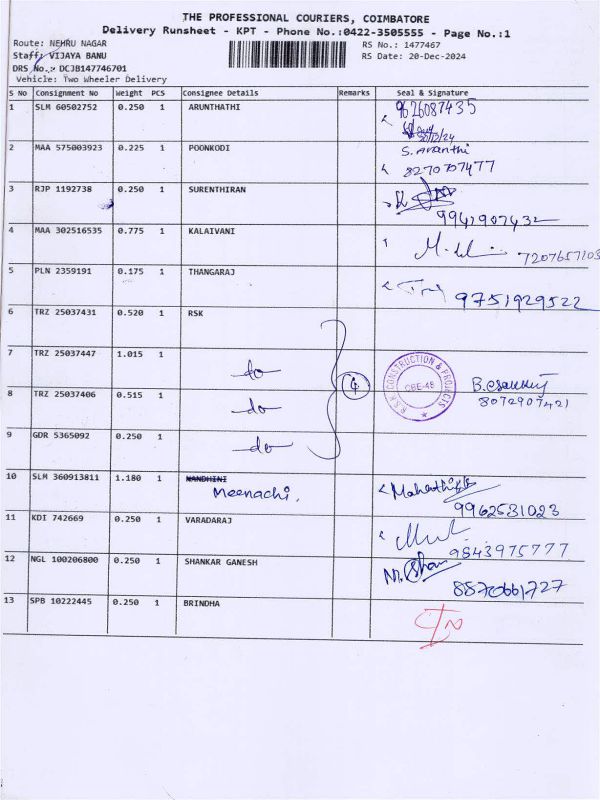 THE PROFESSIONAL COURIERS, COIMBATORE
Delivery Runsheet - KPT - Phone No.:0422-3505555 - Page No.:1
Route: NEHRU NAGAR RS No.: 1477467
Staff: VIJAYA BANU RS Date: 20-Dec-2024
DRS No.: DCJB147746701
Vehicle: Two Wheeler Delivery
S No Consignment No Weight PCS Consignee Details Remarks Seal & Signature
1 SLM 60502752 0.250 1 ARUNTHATHI 9626087435
2 MAA 575003923 0.225 1 POONKODI S. Avanthi
8270707477
3 RJP 1192738 0.250 1 SURENTHIRAN
9941907432
4 MAA 302516535 0.775 1 KALAIVANI 7207657103
5 PLN 2359191 0.175 1 THANGARAJ 9751929522
6 TRZ 25037431 0.520 1 RSK
7 TRZ 25037447 1.015 1 do
4 R.S.K CONSTRUCTION & PROJECTS CBE-48
8 TRZ 25037406 0.515 1 do 8072907421
9 GDR 5365092 0.250 1 do
10 SLM 360913811 1.180 1 NANDHINI
Meenachi.
9962531023
11 KDI 742669 0.250 1 VARADARAJ
9843975777
12 NGL 100206800 0.250 1 SHANKAR GANESH
8870661727
13 SPB 10222445 0.250 1 BRINDHA